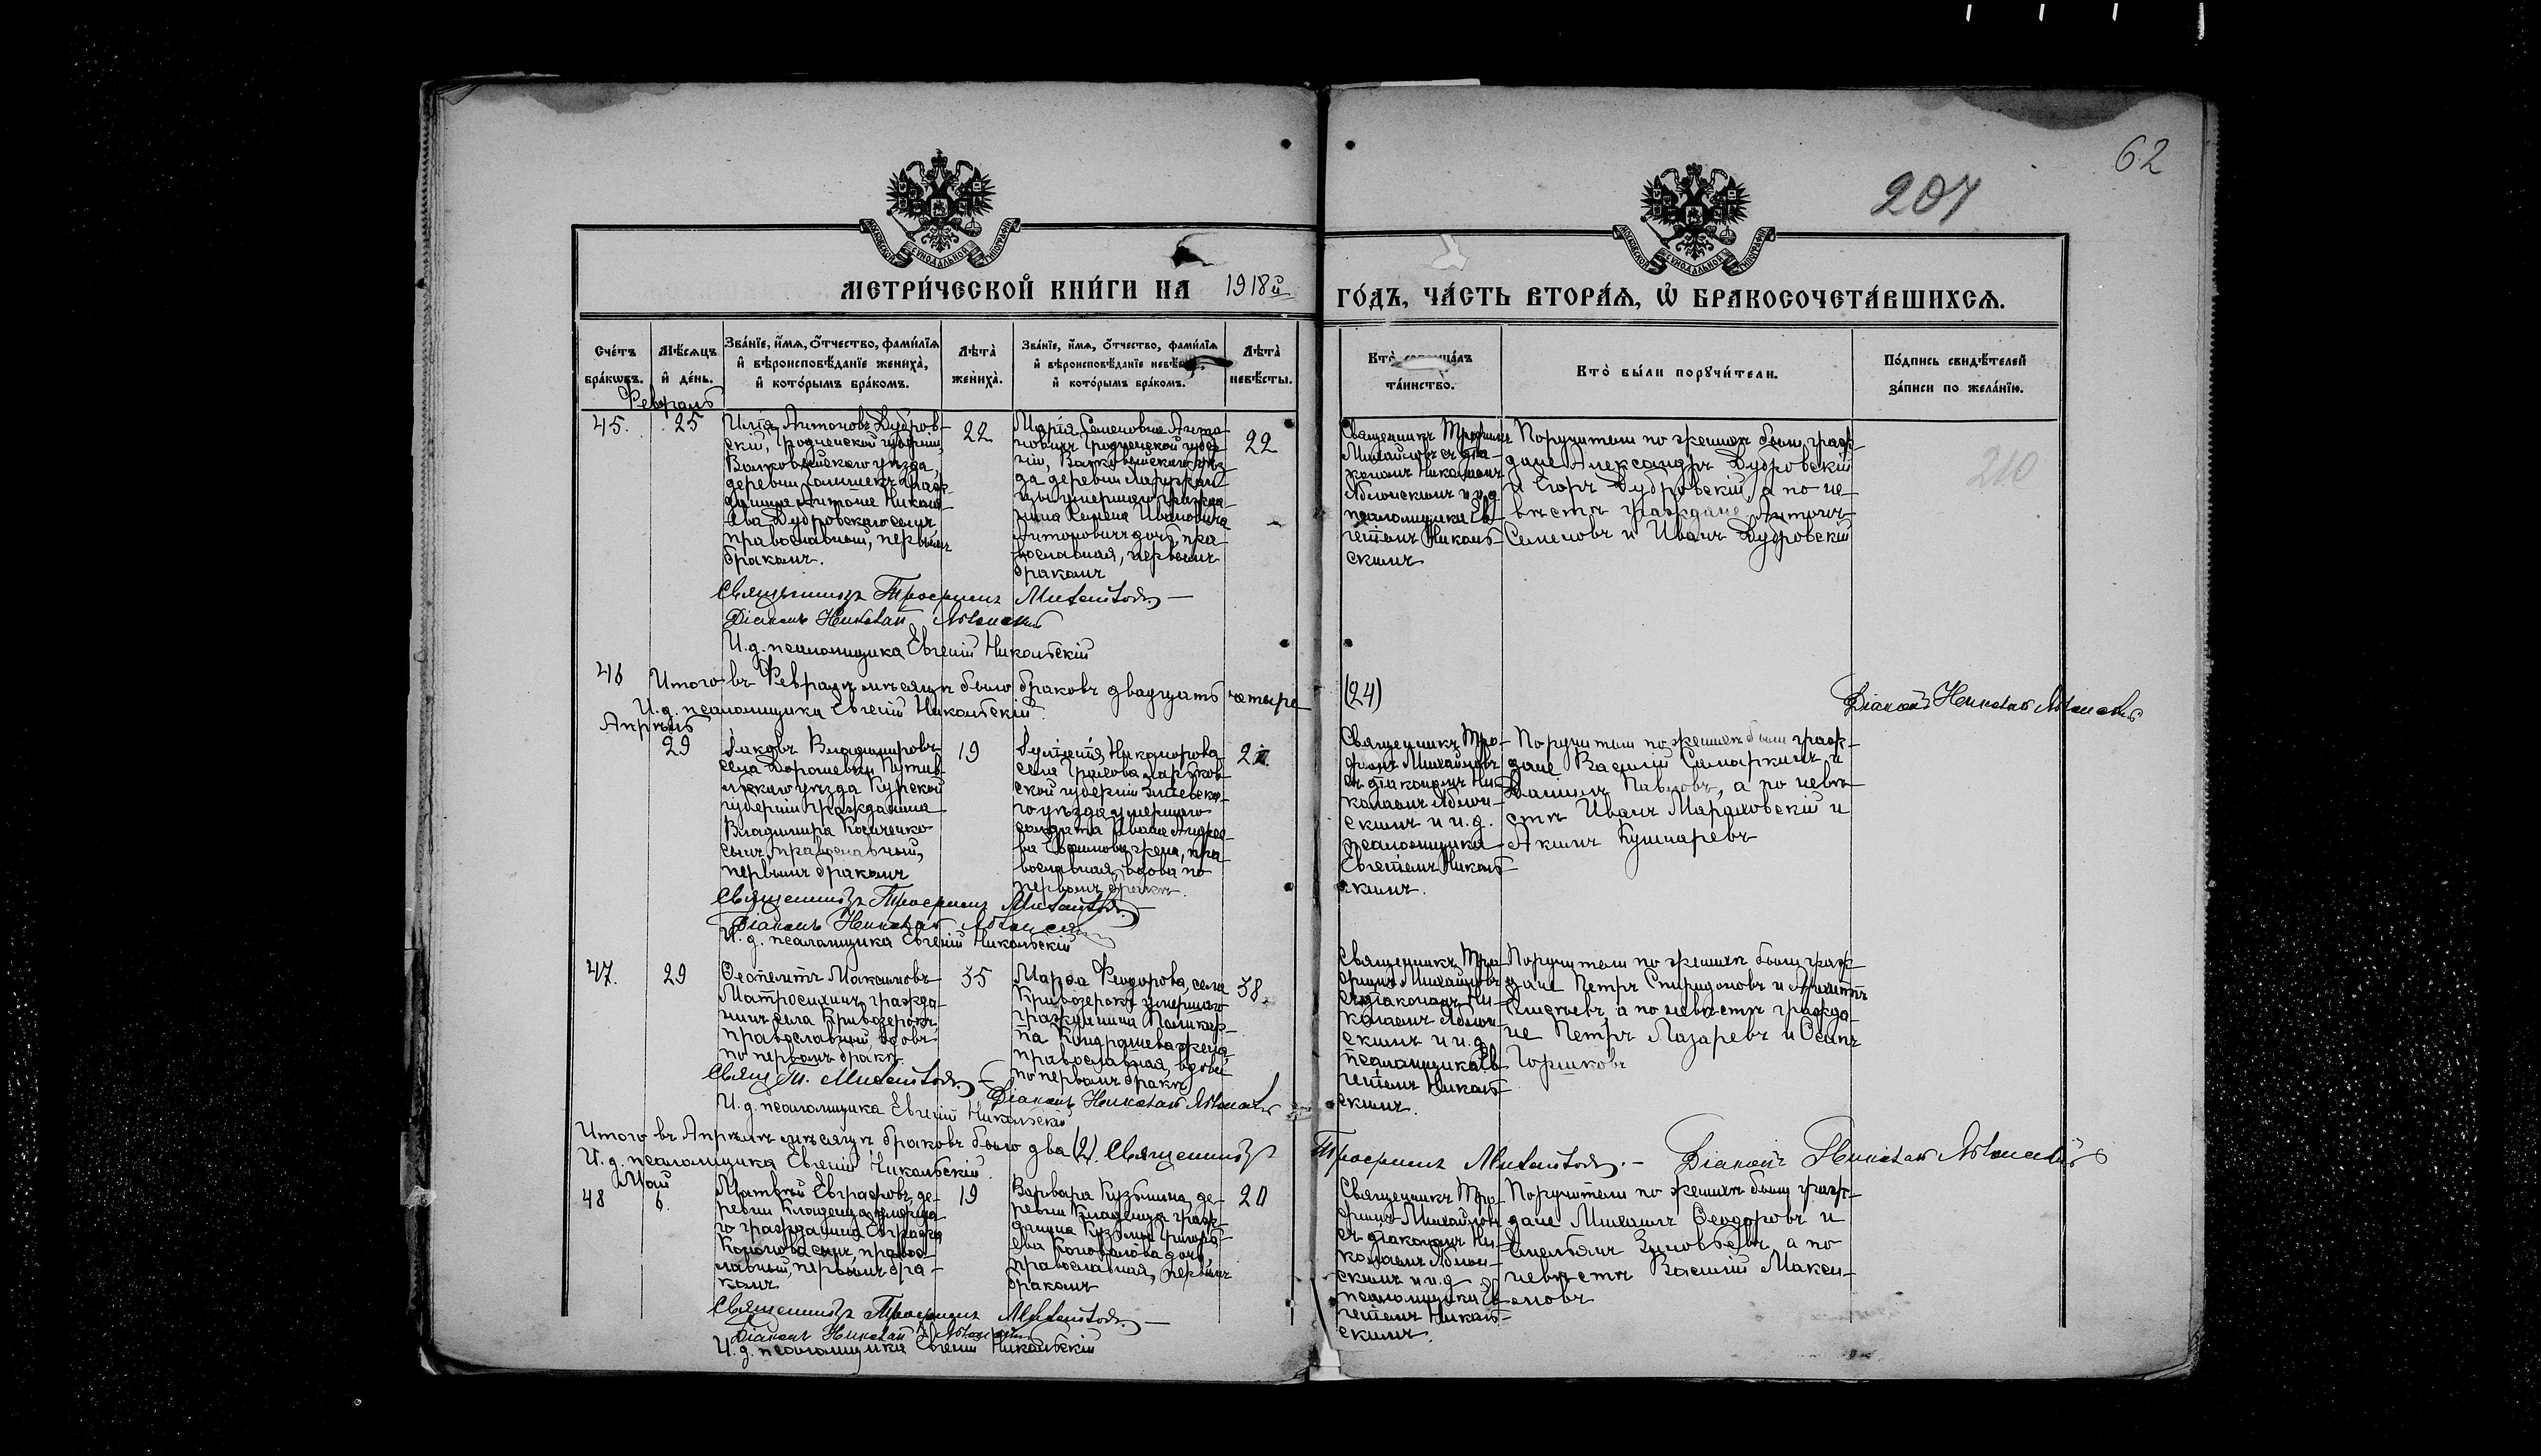 62
207
МОСКОВСКОЙ СѴНОДАЛЬНОЙ ТИПОГРАФІИ
МОСКОВСКОЙ СѴНОДАЛЬНОЙ ТИПОГРАФІИ
МЕТРИ́ЧЕСКОЙ КНИ́ГИ НА 1918й ГО́ДЪ, ЧА́СТЬ ВТОРА́Ѧ, Ѡ҆ БРАКОСОЧЕТА́ВШИХСѦ.
Сче́тъ бра́кѡвъ.
Мѣ́сѧцъ и҆ де́нь.
Зва́нїе, и҆́мѧ, ѻ҆́тчество, фами́лїѧ и҆ вѣроисповѣ́данїе жениха̀, и҆ кото́рымъ бра́комъ.
Лѣта̀ жениха̀.
Зва́нїе, и҆́мѧ, ѻ҆́тчество, фами́лїѧ и҆ вѣроисповѣ́данїе и҆ кото́рымъ бра́комъ.
Лѣта̀ невѣ́сты.
Кто̀ та́инство.
Кто̀ бы́ли порꙋчи́тели.
По́дпись свидѣ́телей за́писи по жела́нїю.
Февраль
45.
25
Илія Антоновъ Дубров-
скій, Гродненской губерніи,
Волковыйскаго уѣзда,
деревни граж-
данина Антона Никола-
ева Дубровскаго сынъ
православный, первымъ
бракомъ.
22
Марія Семеновна Анто-
новичъ Гродненской губер-
ніи, Волковыйскаго уѣз-
да деревни
умершаго гражда-
нина Семена Ивановича
Антоновичъ дочь, пра-
вославная, первымъ
бракомъ
22
Священникъ Трофимъ
Михайловъ съ діа-
кономъ Николаемъ
Яблонскимъ и и.д.
псаломщика Ев-
геніемъ Николь-
скимъ
Поручители по женихѣ были граж-
дане Александръ Дубровскій
и Егоръ Дубровскій, а по не-
вѣстѣ граждане Антонъ
Семеновъ и Иванъ Дубровскій
210
Священникъ Трофимъ Михайловъ
Діаконъ Николай Яблонскій
И.д. псаломщика Евгеній Никольскій
46
Итого въ Февралѣ мѣсяцѣ было браковъ двадцать четыре (24)
И.д. псаломщика Евгеній Никольскій.
Діаконъ Николай Яблонскій
Апрѣль
29
Іаковъ Владимировъ
села Дорошевки Путив-
льскаго уѣзда Курской
губерніи гражданина
Владимира Косиченко
сынъ, православный,
первымъ бракомъ
19
Никанорова
села Харьков-
ской губерніи Зміевска-
го уѣзда умершаго
солдата Ивана Андрее-
ва жена, пра-
вославная, вдова по
первомъ бракѣ.
Священникъ Тро-
фимъ Михайловъ
съ діакономъ Ни-
колаемъ Яблон-
скимъ и и.д.
псаломщика
Евгеніемъ Николь-
скимъ.
Поручители по женихѣ были граж-
дане Василій Самаркинъ и
Даніилъ Павловъ, а по невѣ-
стѣ Иванъ Мараховскій и
Акимъ Кушнаревъ
Священникъ Трофимъ Михайловъ
Діаконъ Николай Яблонскій
И.д. псаломщика Евгеній Никольскій
47.
29
Максимовъ
Матросихинъ, гражда-
нинъ села Кривозерокъ,
православный, вдовъ
по первомъ бракѣ.
35
Марѳа Феодорова, села
Кривозерокъ умершаго
гражданина Поликар-
па Кондрашева жена,
православная, вдова
по первомъ бракѣ
38.
Священникъ Тро-
фимъ Михайловъ
съ діакономъ Ни-
колаемъ Яблон-
скимъ и и.д.
псаломщика Ев-
геніемъ Николь-
скимъ.
Поручители по женихѣ были граж-
дане Петръ Спиридоновъ и
а по невѣстѣ гражда-
не Петръ Лазаревъ и Осипъ
Горшковъ
Свящ. Т. Михайловъ
Діаконъ Николай Яблонскій
И.д. псаломщика Евгеній Никольскій
Итого въ Апрѣлѣ мѣсяцѣ браковъ было два (2). Священникъ Трофимъ Михайловъ. — Діаконъ Николай Яблонскій
И.д. псаломщика Евгеній Никольскій.
Май
48
6.
Матвѣй Евграфовъ, де-
ревни Кладенца умерша-
го гражданина Евграфа
сынъ, правос-
лавный, первымъ бра-
комъ
19
Варвара Кузьмина, де-
ревни Кладенца граж-
данина Кузьмы Григорь-
ева Коновалова дочь,
православная, первымъ
бракомъ
20
Священникъ Тро-
фимъ Михайловъ
съ діакономъ Ни-
колаемъ Яблон-
скимъ и и.д.
псаломщика Ев-
геніемъ Николь-
скимъ.
Поручители по женихѣ были граж-
дане Михаилъ Ѳеодоровъ и
Емельянъ Зиновьевъ, а по
невѣстѣ Василій Макси-
мовъ
Священникъ Трофимъ Михайловъ —
Діаконъ Николай Яблонскій
И.д. псаломщика Евгеній Никольскій